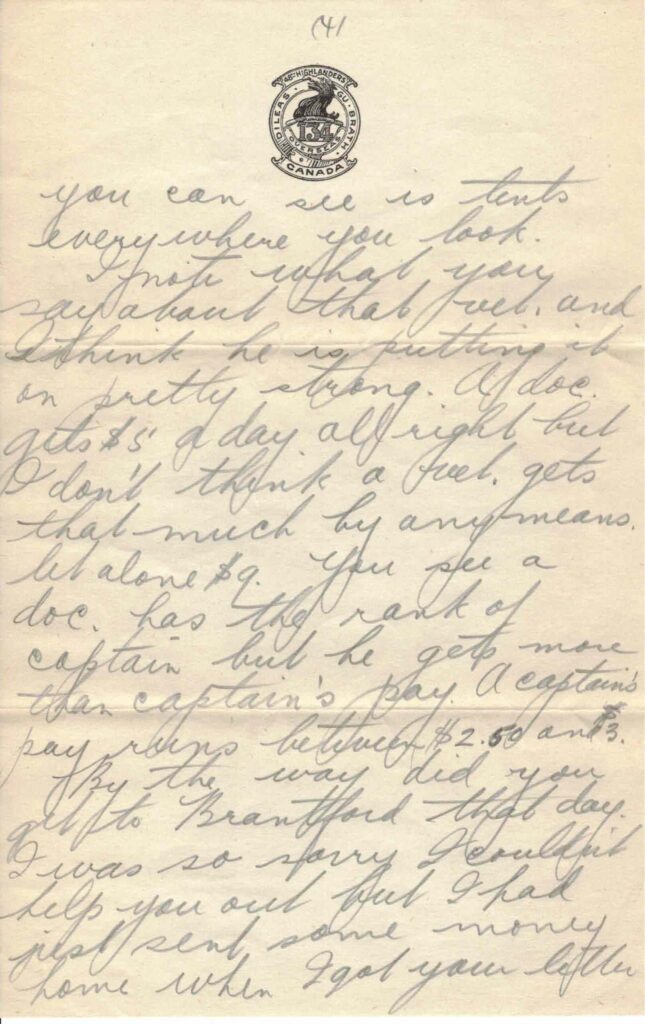 (4)
48TH HIGHLANDERS
DILEAS GU BRATH
134
OVERSEAS
CANADA
you can see is tents
everywhere you look.
I note what you
say about that vet. and
I think he is putting it
on pretty strong. A doc.
gets $5 a day all right but
I don't think a vet. gets
that much by any means.
let alone $9. You see a
doc. has the rank of
captain but he gets more
than captain's pay. A captain's
pay runs between $2.50 and $3.
By the way did you
get to Brantford that day.
I was so sorry I couldn't
help you out but I had
just sent some money
home when I got your letter